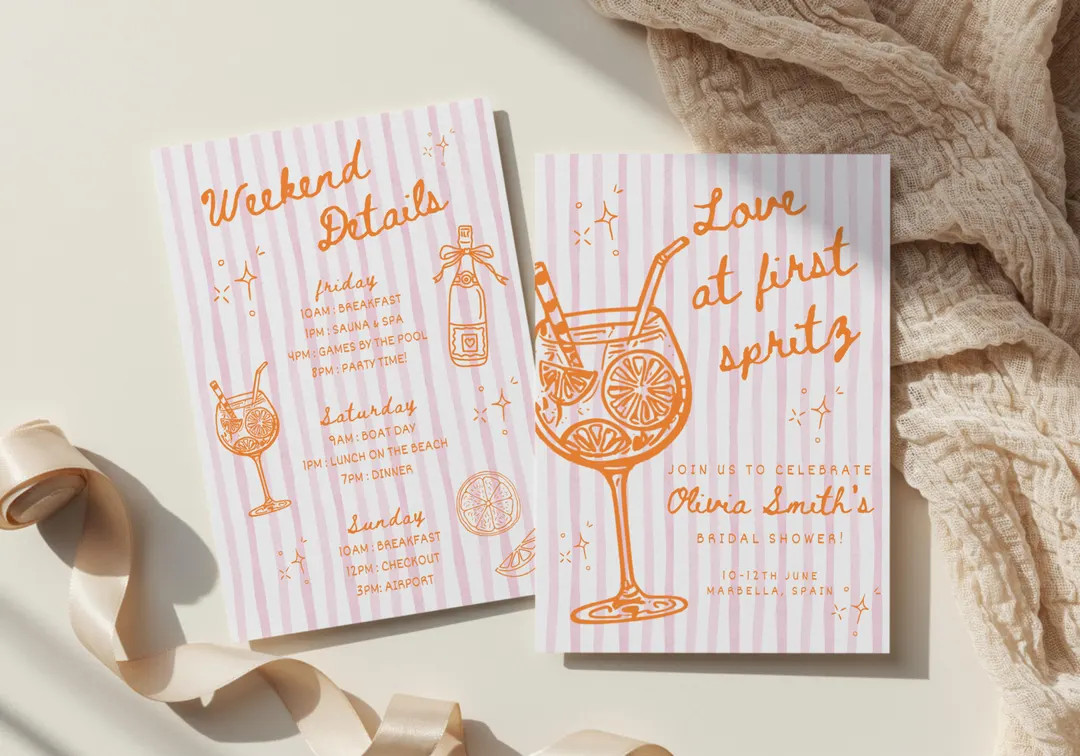 Weekend
Details
friday
10AM : BREAKFAST
1PM : SAUNA & SPA
4PM : GAMES BY THE POOL
8PM : PARTY TIME!
Saturday
9AM : BOAT DAY
1PM : LUNCH ON THE BEACH
7PM : DINNER
Sunday
10AM : BREAKFAST
12PM : CHECKOUT
3PM: AIRPORT
Love
at first
spritz
JOIN US TO CELEBRATE
Olivia Smith's
BRIDAL SHOWER!
10-12TH JUNE
MARBELLA, SPAIN